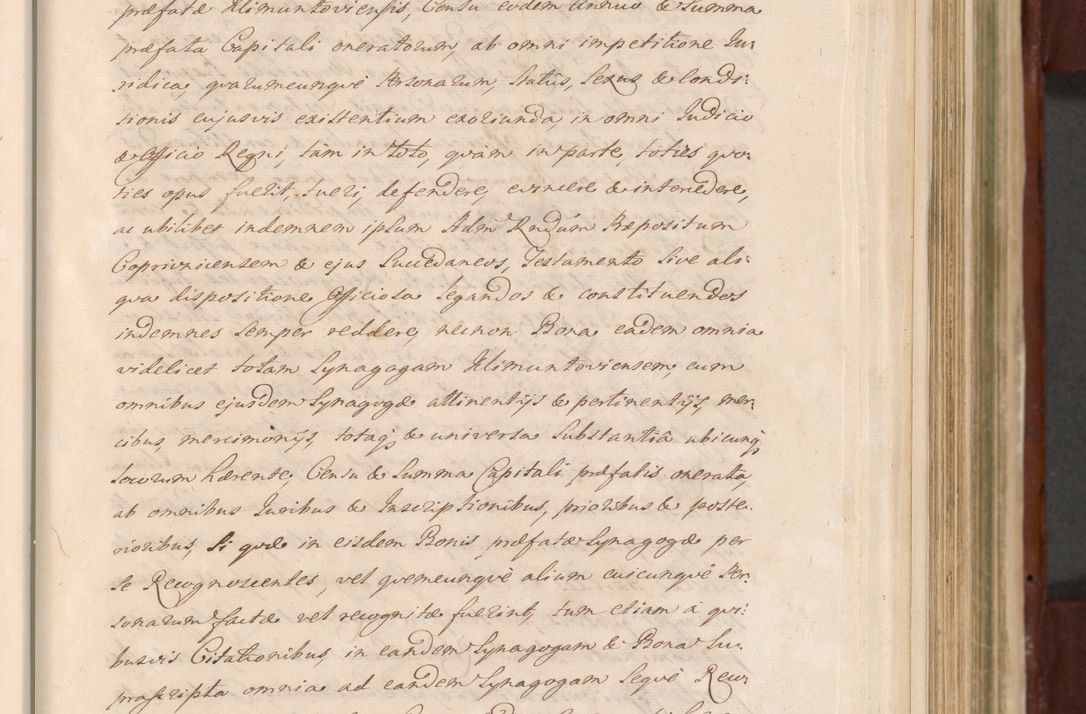 præfatæ Klimuntoviensis, Censu eodem Annuo & Summa
præfata Capitali oneratorum, ab omni impetitione Ju:
ridica, quarumcunqué Personarum, Status, Sexus & Condi:
tionis cujusvis existentium exoriunda, in omni Judicio
& Officio Regni, tàm in toto, quàm in parte, toties quo:
ties opus fuerit, tueri, defendere, evincere & intercedere,
ac ubilibet indemnem ipsum Adm Rndum Præpositum
Coprivnicensem & ejus Succedaneos, Testamento sive ali:
qua dispositione officiosa legandos & constituendos
indemnes semper reddere, necnon Bona eadem omnia
videlicet totam Synagogam Klimuntoviensem, cum
omnibus ejusdem Synagogæ attinentijs & pertinentijs, mer:
cibus, mercimonijs, totaq & universa Substantiâ ubicunq
locorum hærente, Censu & Summa Capitali præfatis onerata,
ab omnibus Juribus & Inscriptionibus, prioribus & poste:
rioribus, Si quæ in eisdem Bonis præfatæ Synagogæ per
se Recognoscentes, vel quemcunqué alium cuicunqué Per:
sonarum factæ vel recognitæ fuerint, tum etiam à qui:
busvis Citationibus, in eandem Synagogam & Bona su:
prascripta omnia ad eandem Synagogam Sequé Reco: